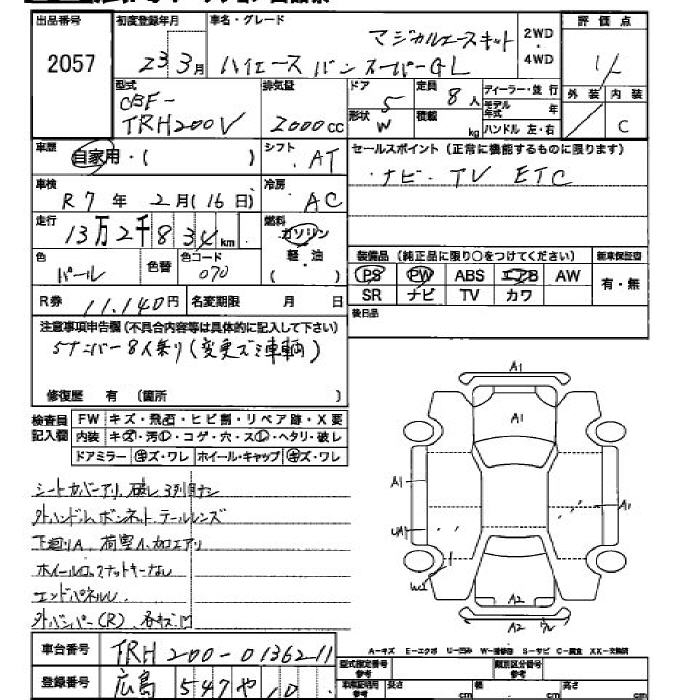 出品番号 初度登録年月 車名・グレード 2WD・4WD 評価点
2057 23 3月 ハイエース バン スーパーGL マジカルエースキット
外装 内装
C
型式 排気量 ドア 定員 ディーラー・並行
CBF- 5 8人 モデル年式 年
TRH200V 2000cc 形状 W 積載 kg ハンドル 左・右
車歴 自家用・( ) シフト AT セールスポイント(正常に機能するものに限ります)
ナビ・TV ETC
車検 R7年 2月(16日) 冷房 AC
走行 13万2千8 km 燃料 ガソリン
軽・油
色 パール 色替 色コード 070
装備品(純正品に限り○をつけてください) 新車保証書
PS PW ABS エアB AW 有・無
SR ナビ TV カワ
R券 11,140円 名変期限 月 日
後日品
注意事項申告欄(不具合内容等は具体的に記入して下さい)
5ナンバー8人乗り(変更ズミ車輌)
修復歴 有 (箇所 )
検査員記入欄 FW キズ・飛石・ヒビ割・リペア跡・X要
内装 キズ・汚レ・コゲ・穴・スレ・ヘタリ・破レ
ドアミラー キズ・ワレ ホイール・キャップ キズ・ワレ
シートカバーアリ、破レ 3列目ナシ
外ハンドル ボンネット、テールレンズ
下廻りA、荷室A、加工アリ
ホイールロックナットキーなし
エンドパネルレ
外バンパー(R)
A1
A1
A1
A1
UA1
W2
A2
A2
A-キズ E-エクボ U-凹み W-補修跡 S-サビ C-腐食 XX-交換済
車台番号 TRH200-0136211
型式指定番号 類別区分番号
登録番号 広島 547 や 10
長さ cm 幅 cm 高さ cm